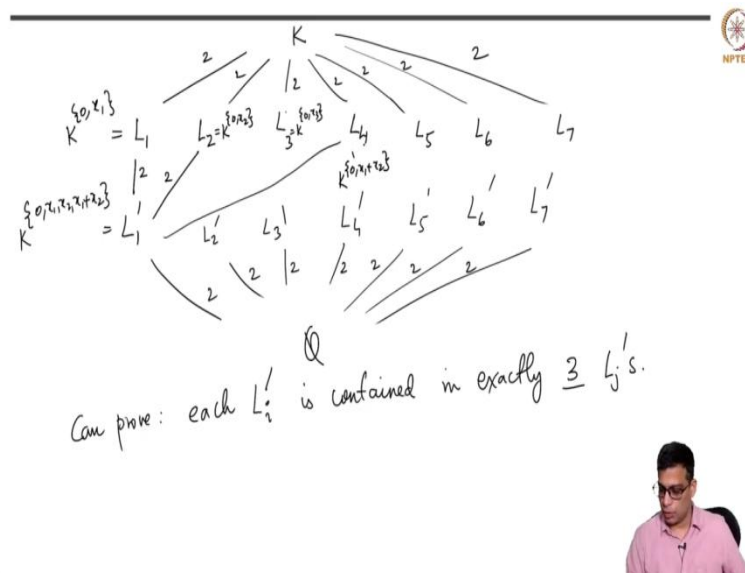 NPTEL
K
2 2 2 2 2 2 2
K^{0,x_1} = L_1 L_2 = K^{0,x_2} L_3 = K^{0,x_3} L_4 L_5 L_6 L_7
2 2 K^{0,x_1+x_2}
K^{0,x_1,x_2,x_1+x_2} = L_1' L_2' L_3' L_4' L_5' L_6' L_7'
2 2 2 2 2 2 2
Q
Can prove: each L_i' is contained in exactly 3 L_j's.